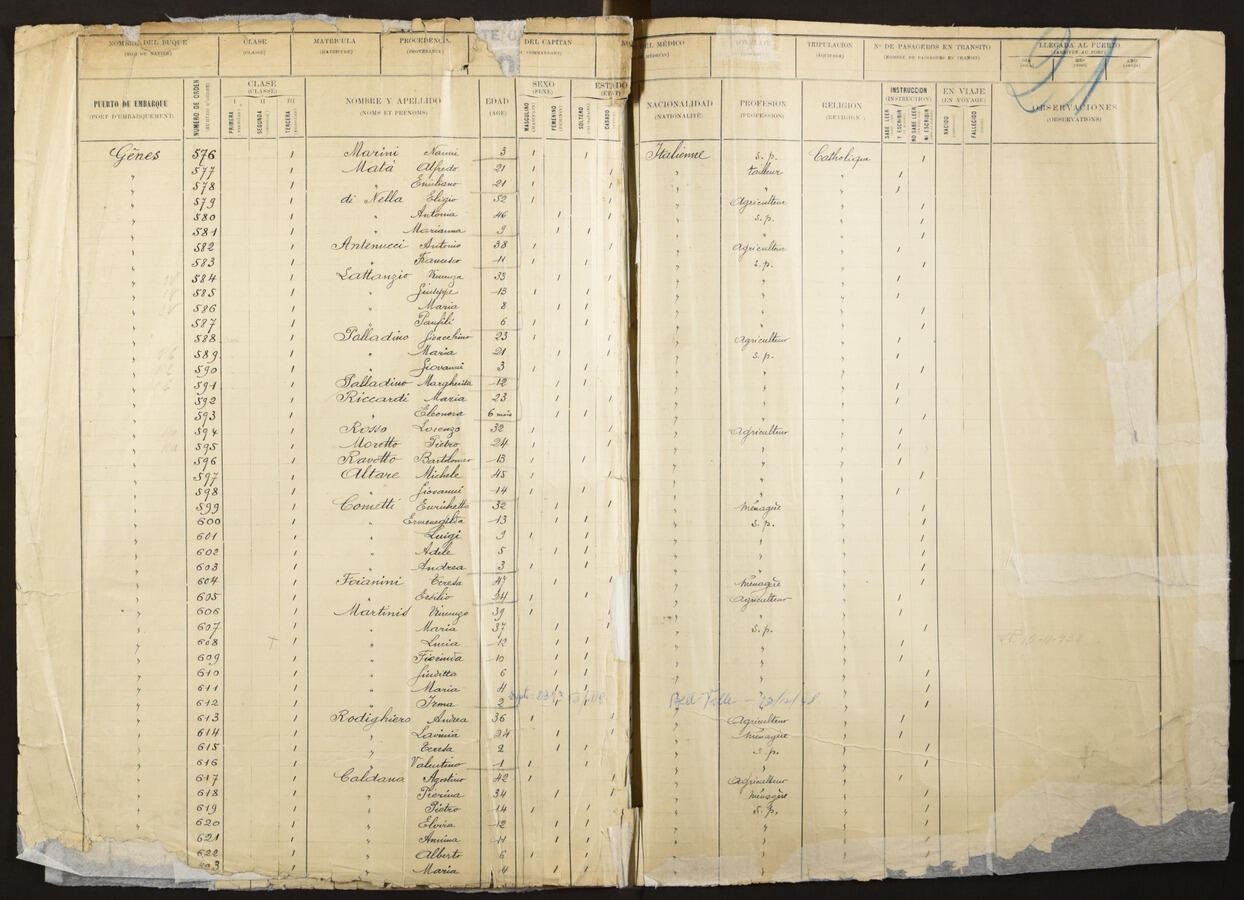 NOMBRE DEL BUQUE CLASE MATRICULA PROCEDENCIA DEL CAPITAN DEL MÉDICO TRIPULACION Nº DE PASAGEROS EN TRÁNSITO LLEGADA AL PUERTO
(NOM DU NAVIRE) (CLASSE) (MATRICULE) (PROVENANCE) (EQUIPAGE) (NOMBRE DE PASSAGERS EN TRANSIT)
21
PUERTO DE EMBARQUE NÚMERO DE ORDEN CLASE NOMBRE Y APELLIDO EDAD SEXO ESTADO NACIONALIDAD PROFESION RELIGION INSTRUCCION EN VIAJE OBSERVACIONES
(PORT D'EMBARQUEMENT) (CLASSE) (NOMS ET PRÉNOMS) (AGE) (SEXE) (ÉTAT) (NATIONALITÉ) (PROFESSION) (RELIGION) (INSTRUCTION) (EN VOYAGE) (OBSERVATIONS)
I II III
PRIMERA SEGUNDA TERCERA MASCULINO FEMENINO SOLTERO CASADO SABE LEER Y ESCRIBIR NO SABE LEER NI ESCRIBIR NACIDO FALLECIDO
Gênes 576 1 Marini Nanni 3 1 1 Italienne s.p. Catholique 1
" 577 1 Matá Alfredo 21 1 1 " tailleur " 1
" 578 1 " Emiliano 21 1 1 " " " 1
" 579 1 di Nella Eligio 52 1 1 " Agriculteur " 1
" 580 1 " Antonia 46 1 1 " s.p. " 1
" 581 1 " Marianna 9 1 1 " " " 1
" 582 1 Antenucci Antonio 38 1 1 " Agriculteur " 1
" 583 1 " Francesco 11 1 1 " s.p. " 1
" 584 1 Lattanzio Vincenza 33 1 1 " " " 1
" 585 1 " Giuseppe 13 1 1 " " " 1
" 586 1 " Maria 8 1 1 " " " 1
" 587 1 " Panfili 6 1 1 " " " 1
" 588 1 Palladino Gioacchino 23 1 1 " Agriculteur " 1
" 589 1 " Maria 21 1 1 " s.p. " 1
" 590 1 " Giovanni 3 1 1 " " " 1
" 591 1 Palladino Margherita 12 1 1 " " " 1
" 592 1 Riccardi Maria 23 1 1 " " " 1
" 593 1 " Eleonora 6 mois 1 1 " " " 1
" 594 1 Rosso Lorenzo 32 1 1 " Agriculteur " 1
" 595 1 Moretto Pietro 24 1 1 " " " 1
" 596 1 Ravotto Bartolomeo 13 1 1 " " " 1
" 597 1 Altare Michele 45 1 1 " " " 1
" 598 1 " Giovanni 14 1 1 " " " 1
" 599 1 Cometti Enrichetta 32 1 1 " Ménagère " 1
" 600 1 " Ermenegilda 13 1 1 " s.p. " 1
" 601 1 " Luigi 9 1 1 " " " 1
" 602 1 " Adele 5 1 1 " " " 1
" 603 1 " Andrea 3 1 1 " " " 1
" 604 1 Foianini Teresa 47 1 1 " Ménagère " 1
" 605 1 " Ersilio 24 1 1 " Agriculteur " 1
" 606 1 Martinis Vincenzo 39 1 1 " " " 1
" 607 1 " Maria 37 1 1 " s.p. " 1
" 608 1 " Lucia 12 1 1 " " " 1
" 609 1 " 10 1 1 " " " 1
" 610 1 " Giuditta 6 1 1 " " " 1
" 611 1 " Maria 4 1 1 " " " 1
" 612 1 " Irma 2 1 1 " Bell Ville " 1
" 613 1 Rodighiero Andrea 36 1 1 " Agriculteur " 1
" 614 1 " Lavinia 24 1 1 " Ménagère " 1
" 615 1 " Teresa 2 1 1 " s.p. " 1
" 616 1 " Valentino 1 1 1 " " " 1
" 617 1 Caldana Agostino 42 1 1 " Agriculteur " 1
" 618 1 " Pierina 34 1 1 " Ménagère " 1
" 619 1 " Pietro 14 1 1 " s.p. " 1
" 620 1 " Elvira 12 1 1 " " " 1
" 621 1 " Annina 11 1 1 " " " 1
" 622 1 " Alberto 6 1 1 " " " 1
" 1 " Maria 4 1 1 " " " 1